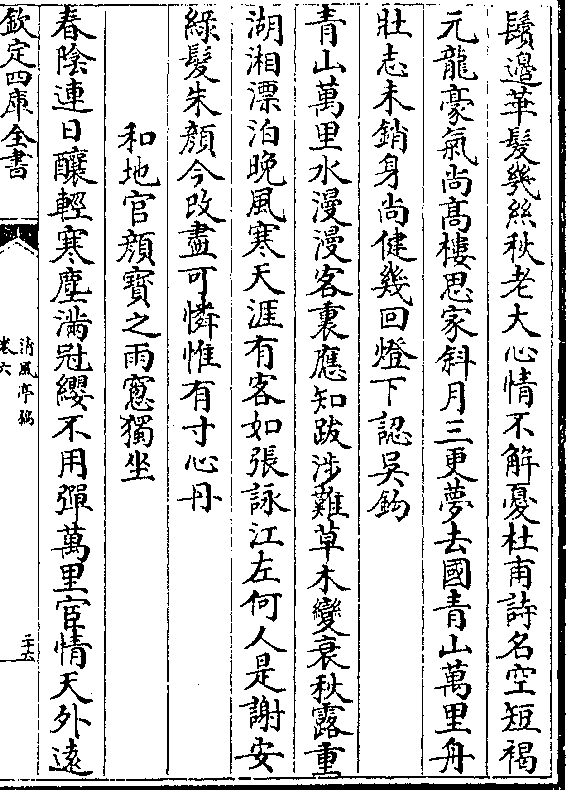 鬚邊華髮幾絲秋老大心情不解憂杜甫詩名空短褐
元龍豪氣尚髙樓思家斜月三更夢去國青山萬里舟
壯志未銷身尚健幾回燈下認吳鈎
青山萬里水漫漫客裏應知跋涉難草木變衰秋露重
湖湘漂泊晩風寒天涯有客如張詠江左何人是謝安
綠髮朱顔今改盡可憐惟有寸心丹
和地官顔寶之雨窓獨坐
春陰連日釀輕寒塵滿冠纓不用彈萬里宦情天外遠
欽定四庫全書
清風亭稿
卷六
二十六